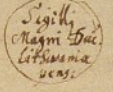 Sigilli
Magni Duc.
Lithuaniæ